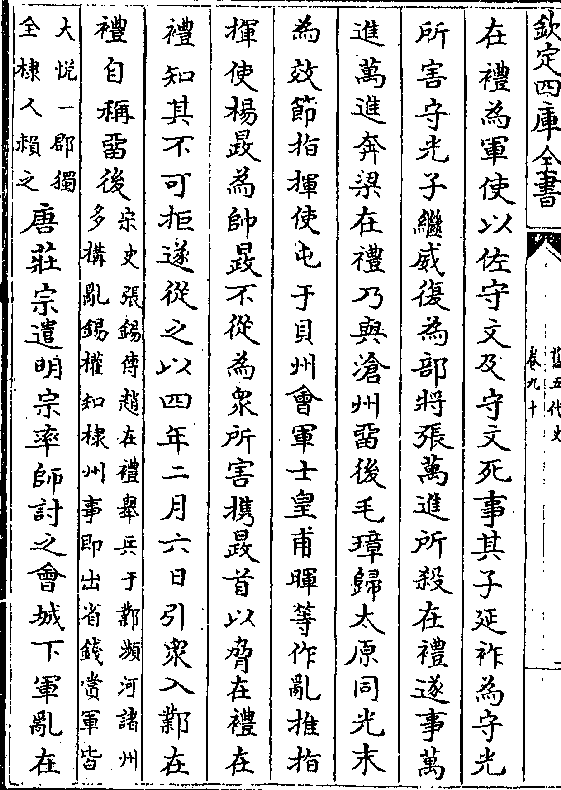 欽定四庫全書
舊五代史
卷九十
在禮為軍使以佐守文及守文死事其子延祚為守光
所害守光子繼威復為部將張萬進所殺在禮遂事萬
進萬進奔梁在禮乃與滄州留後毛璋歸太原同光末
為效節指揮使屯于貝州會軍士皇甫暉等作亂推指
揮使楊晸為帥晸不從為衆所害携晸首以脅在禮在
禮知其不可拒遂從之以四年二月六日引衆入鄴在
禮自稱留後
宋史張錫傳趙在禮舉兵于鄴瀕河諸州
多構亂錫權知棣州事即出省錢賞軍皆
大悦一郡獨
全棣人賴之
唐莊宗遣明宗率師討之會城下軍亂在